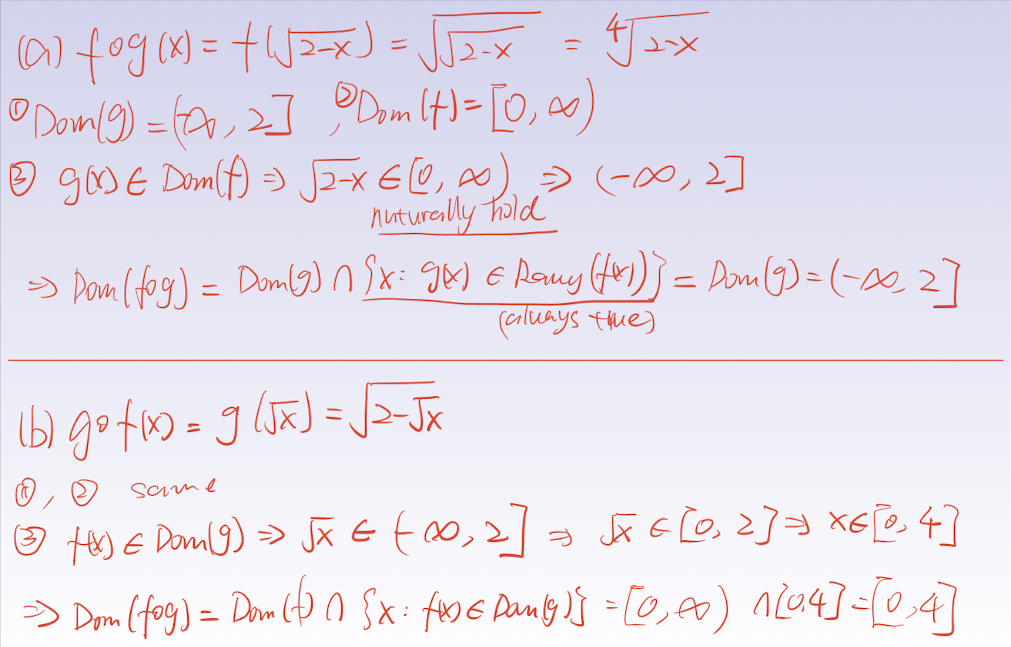 (a) f∘g(x) = f(√(2-x)) = √(√(2-x)) = ⁴√(2-x)
① Dom(g) = (-∞, 2] , ② Dom(f) = [0, ∞)
③ g(x) ∈ Dom(f) ⇒ √(2-x) ∈ [0, ∞) ⇒ (-∞, 2]
nuturally hold
⇒ Dom(f∘g) = Dom(g) ∩ {x: g(x) ∈ (f(x))} = Dom(g) = (-∞, 2]
(always true)
(b) g∘f(x) = g(√x) = √(2-√x)
①, ② same
③ f(x) ∈ Dom(g) ⇒ √x ∈ (-∞, 2] ⇒ √x ∈ [0, 2] ⇒ x ∈ [0, 4]
⇒ Dom(fog) = Dom(f) ∩ {x: f(x) ∈ Dom(g)} = [0, ∞) ∩ [0,4] = [0, 4]